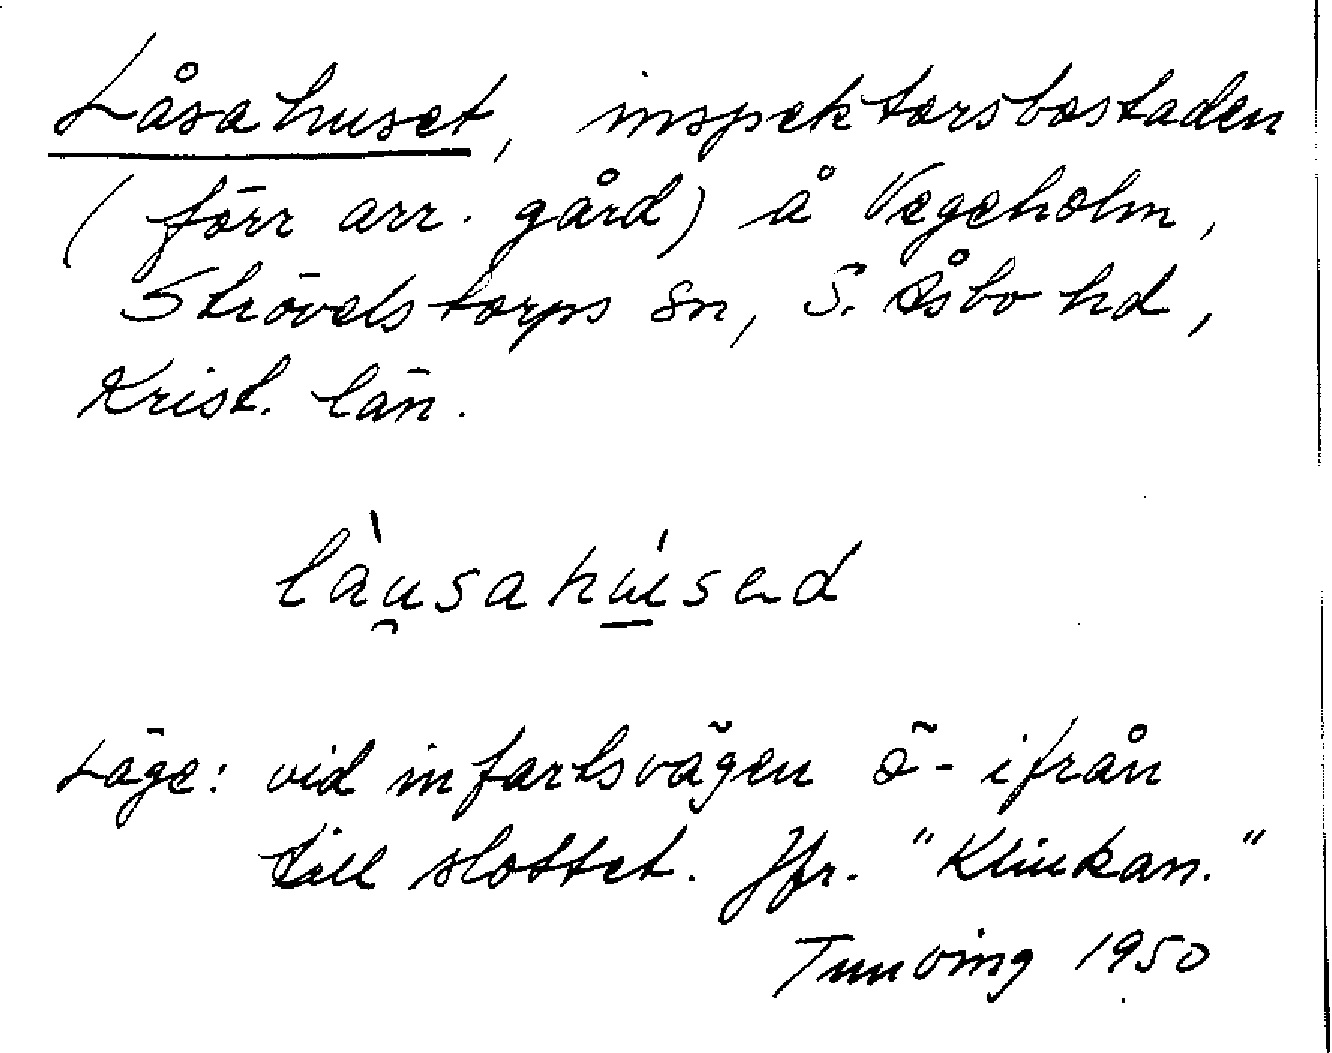 Låsahuset, inspektorsbostaden
(förr arr. gård) å Vegeholm,
Strövelstorps sn, S. Åsbo hd,
Krist. län.
làu̯sahúsəd
Läge: vid infartsvägen ö- ifrån
till slottet. Jfr. "Klinkan."
Tunving 1950